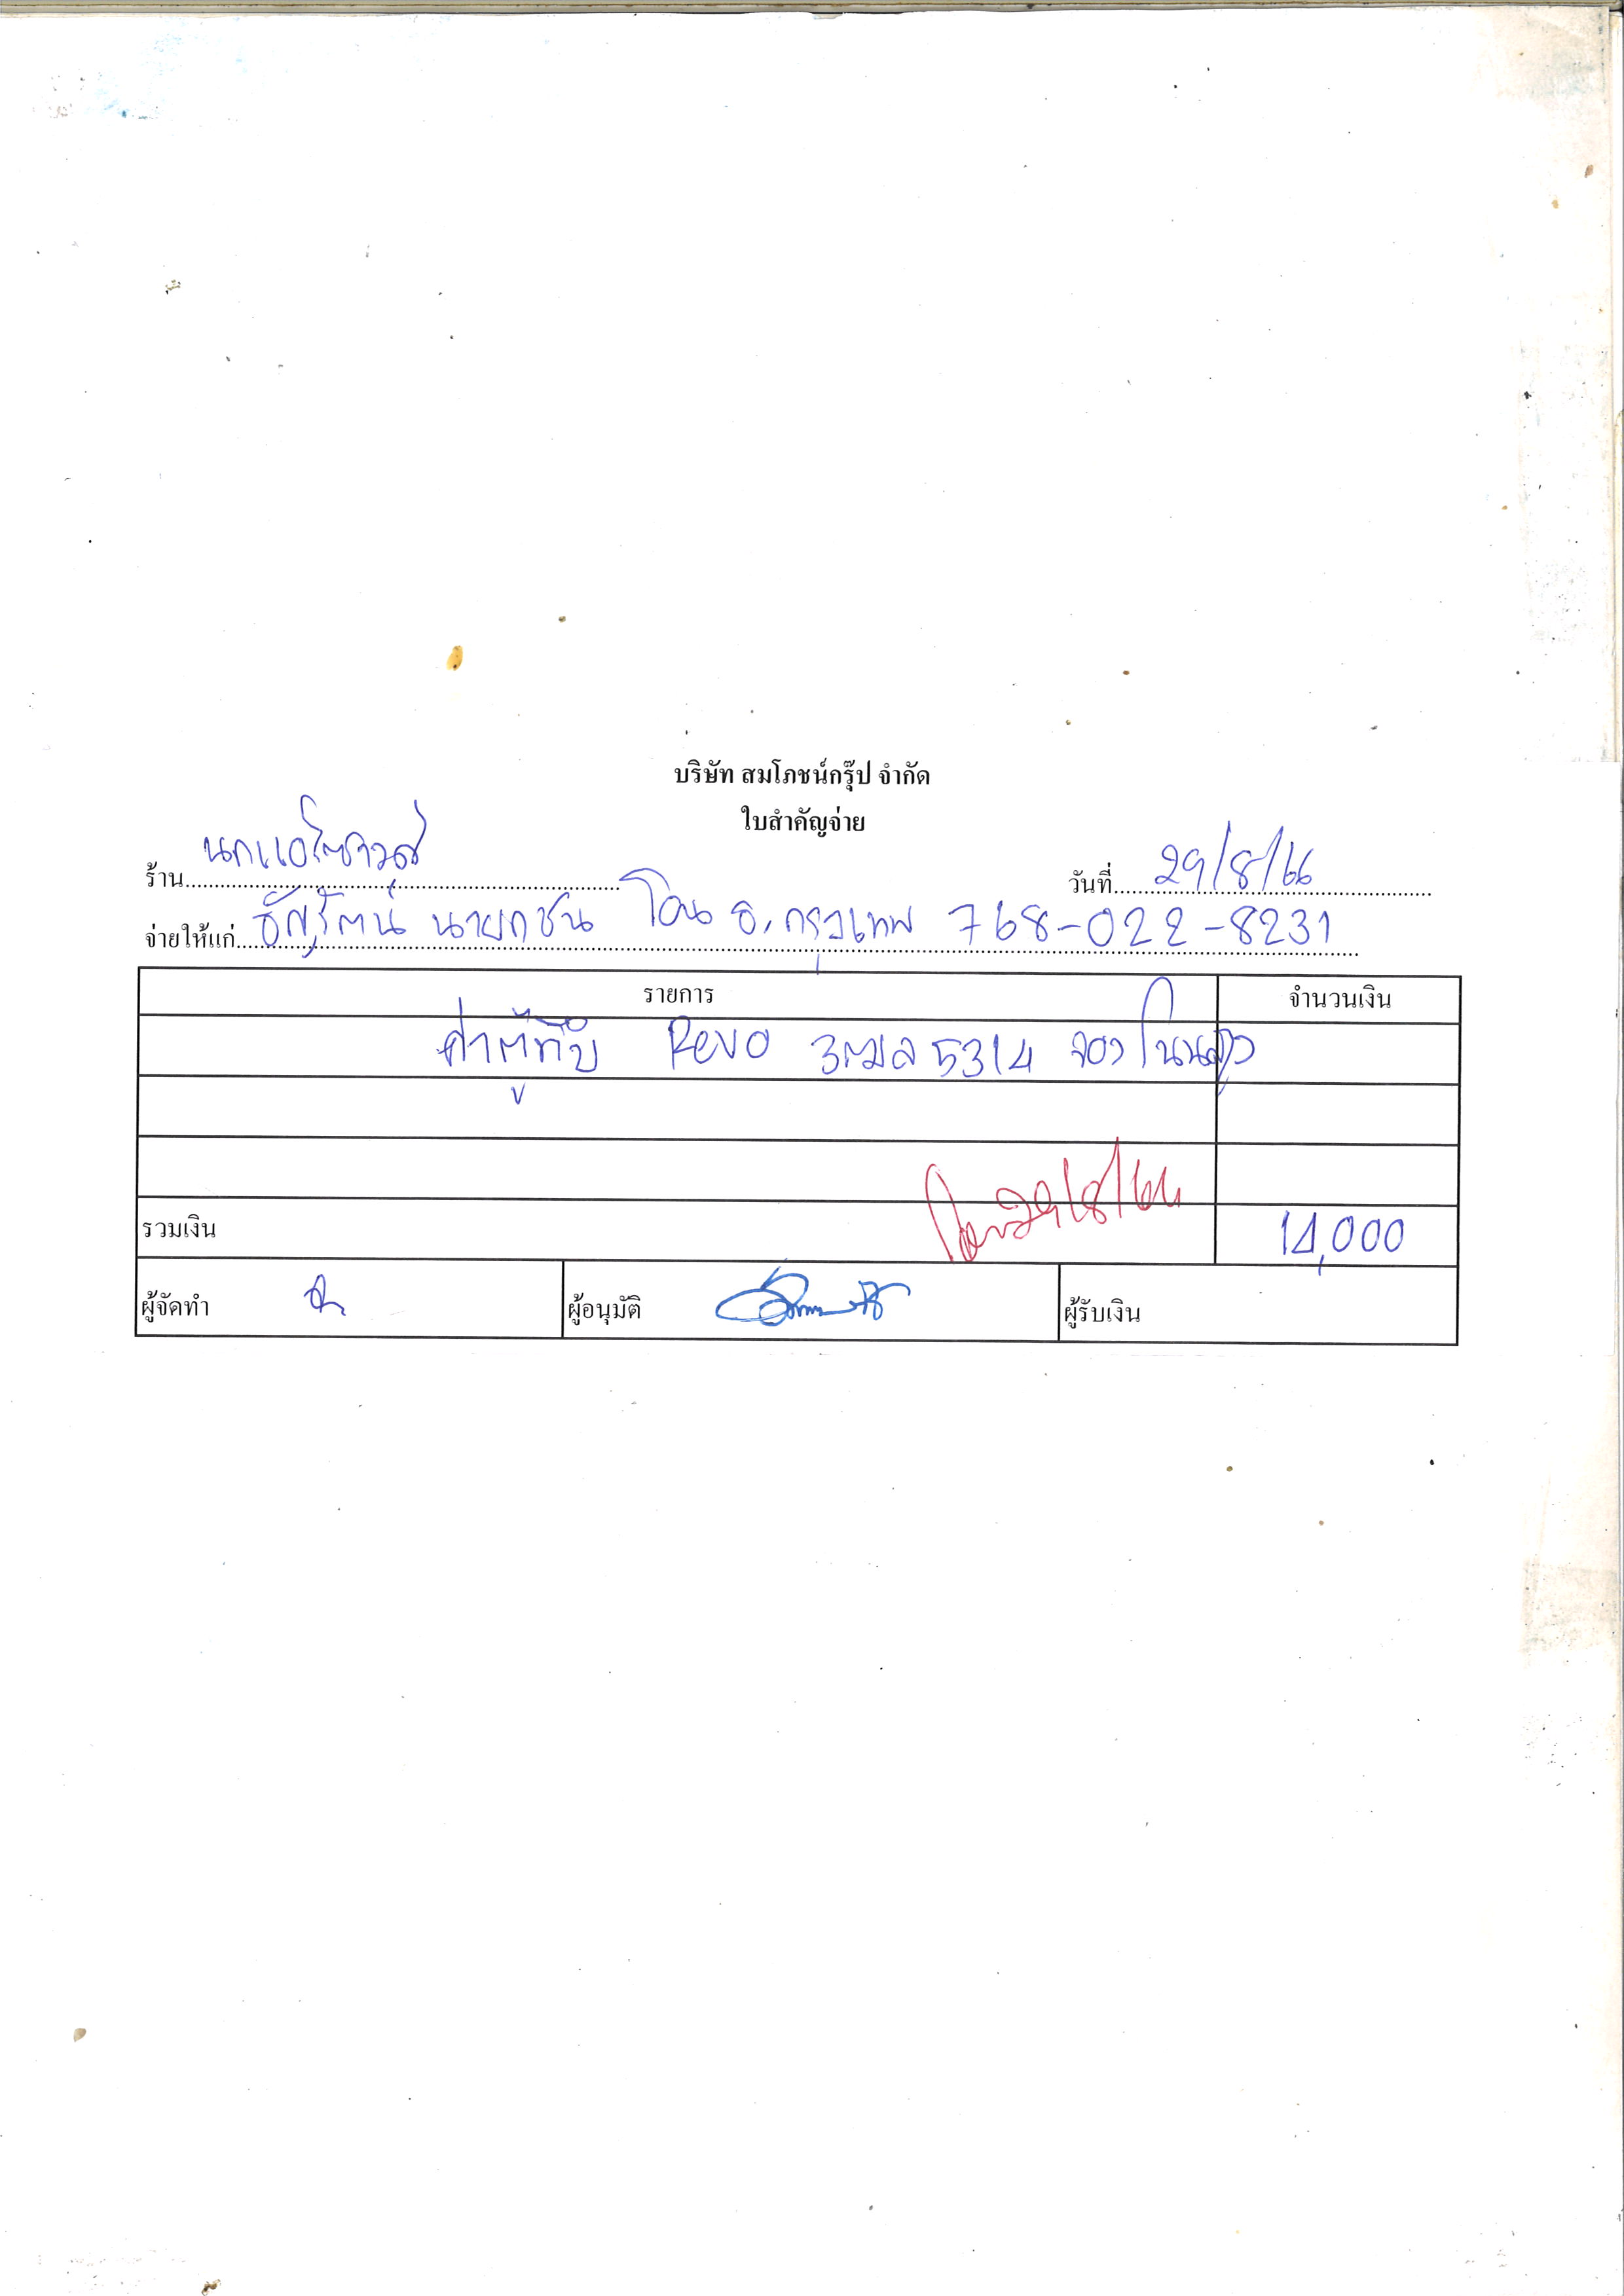 บริษัท สมโภชน์กรุ๊ป จำกัด
ใบสำคัญจ่าย
ร้าน นกแอโซาวด์
วันที่ 29/8/66
จ่ายให้แก่ ธัญรัตน์ นายกชน โอน ธ.กรุงเทพ 768-022-8231
รายการ จำนวนเงิน
ค่าตู้ทึบ Revo 3ฒล5314 จอง โนนสูง
โอน 29/8/66
รวมเงิน 14,000
ผู้จัดทำ ผู้อนุมัติ ผู้รับเงิน